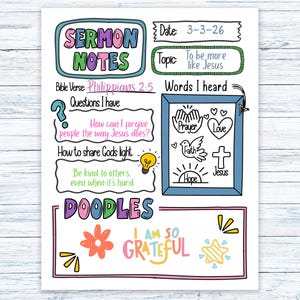 SERMON
NOTES
Date: 3-3-26
Topic: To be more
like Jesus
Bible Verse: Philippians 2:5
Words I heard
Questions I have
How can I forgive
people the way Jesus does?
Prayer
Love
Faith
Jesus
Hope
How to share God's light
Be kind to others,
even when it's hard.
DOODLES
I AM SO
GRATEFUL